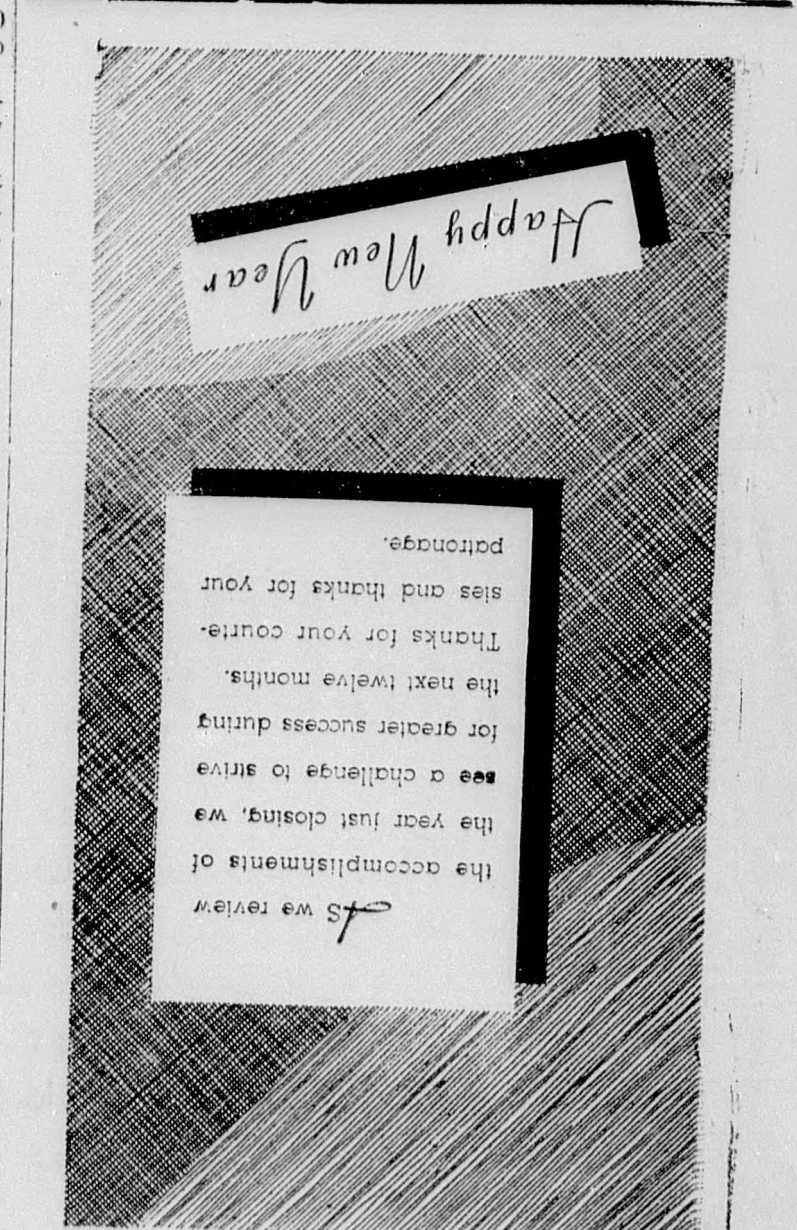 AS we review
the accomplishments of
the year just closing, we
see a challenge to strive
for greater success during
the next twelve months.
Thanks for your courte-
sies and thanks for your
patronage.
Happy New Year